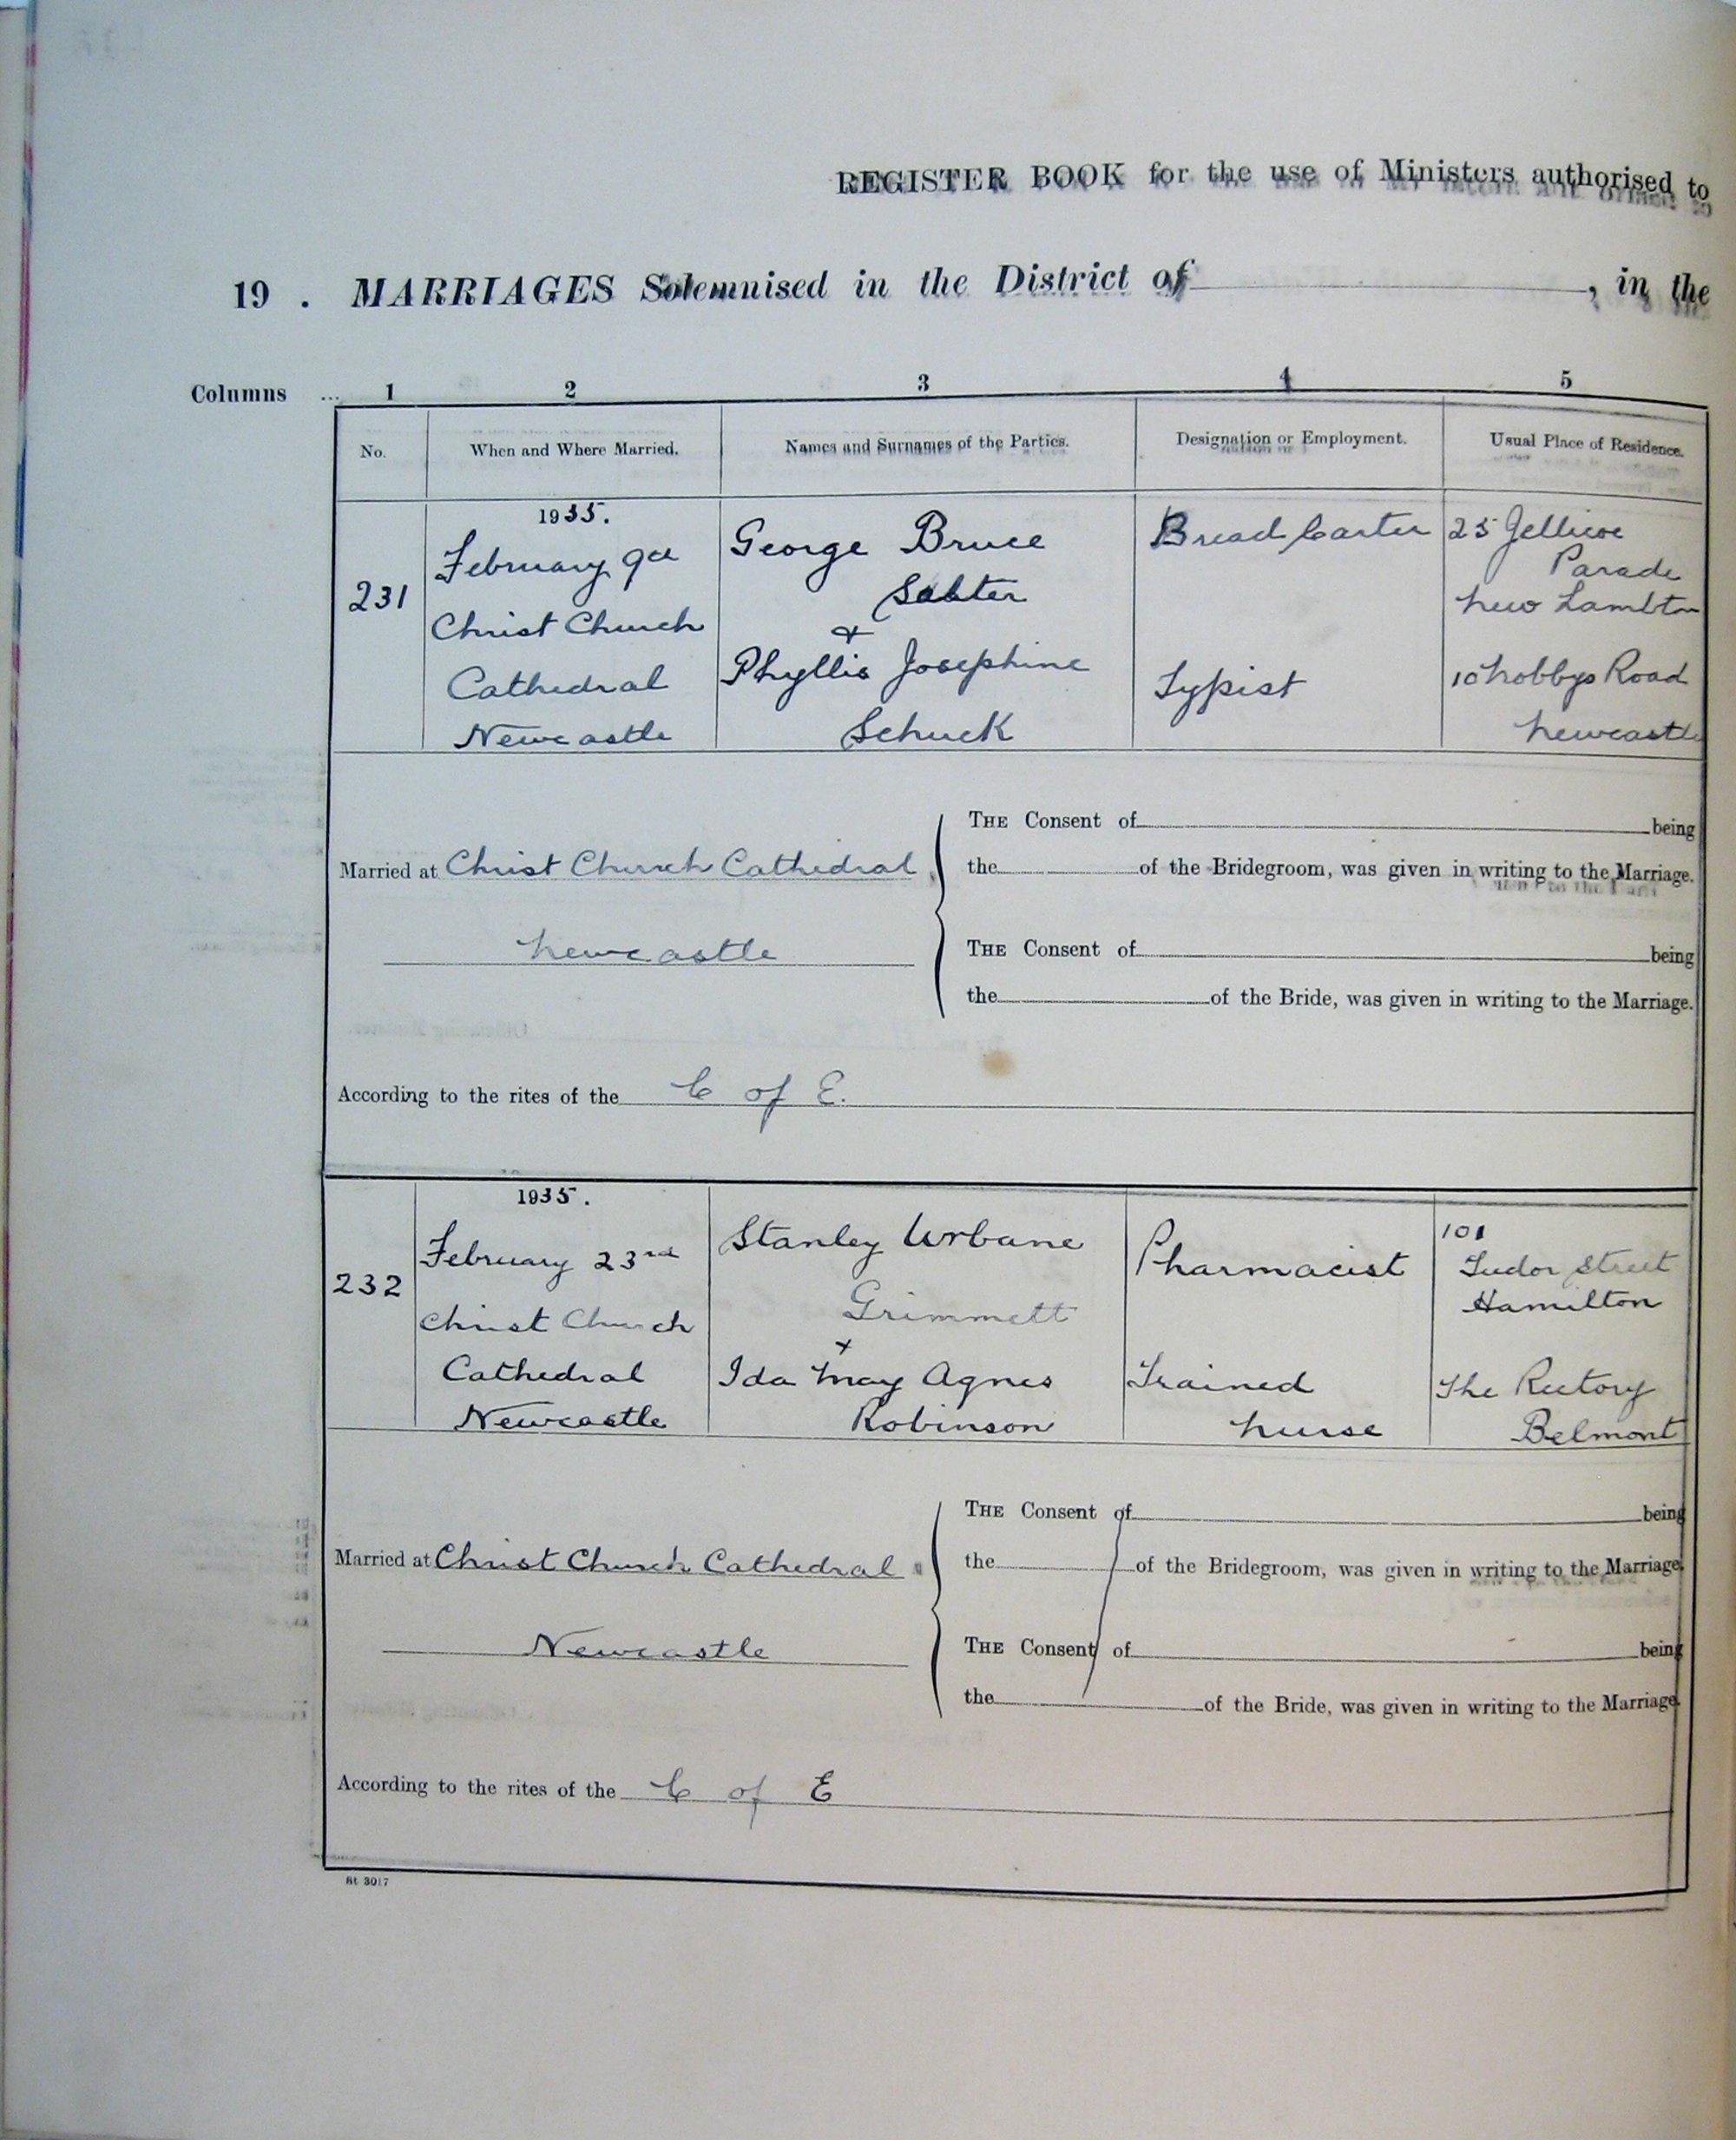 REGISTER BOOK for the use of Ministers authorised to
19 . MARRIAGES Solemnised in the District of , in the
Columns ... 1 2 3 4 5
No. When and Where Married. Names and Surnames of the Parties. Designation or Employment. Usual Place of Residence.
1935.
231
February 9th
Christ Church
Cathedral
Newcastle
George Bruce
&
Phyllis Josephine
Schuck
Bread Carter
Typist
25 Jellicoe
Parade
New Lambton
10 Nobbys Road
Newcastle
Married at Christ Church Cathedral
Newcastle
THE Consent of being
the of the Bridegroom, was given in writing to the Marriage.
THE Consent of being
the of the Bride, was given in writing to the Marriage.
According to the rites of the C of E.
1935.
232
February 23rd
Christ Church
Cathedral
Newcastle
Stanley Urbane
Grimmett
+
Ida May Agnes
Robinson
Pharmacist
Trained
Nurse
101
Tudor Street
Hamilton
The Rectory
Belmont
Married at Christ Church Cathedral
Newcastle
THE Consent of being
the of the Bridegroom, was given in writing to the Marriage.
THE Consent of being
the of the Bride, was given in writing to the Marriage.
According to the rites of the C of E
St 3017